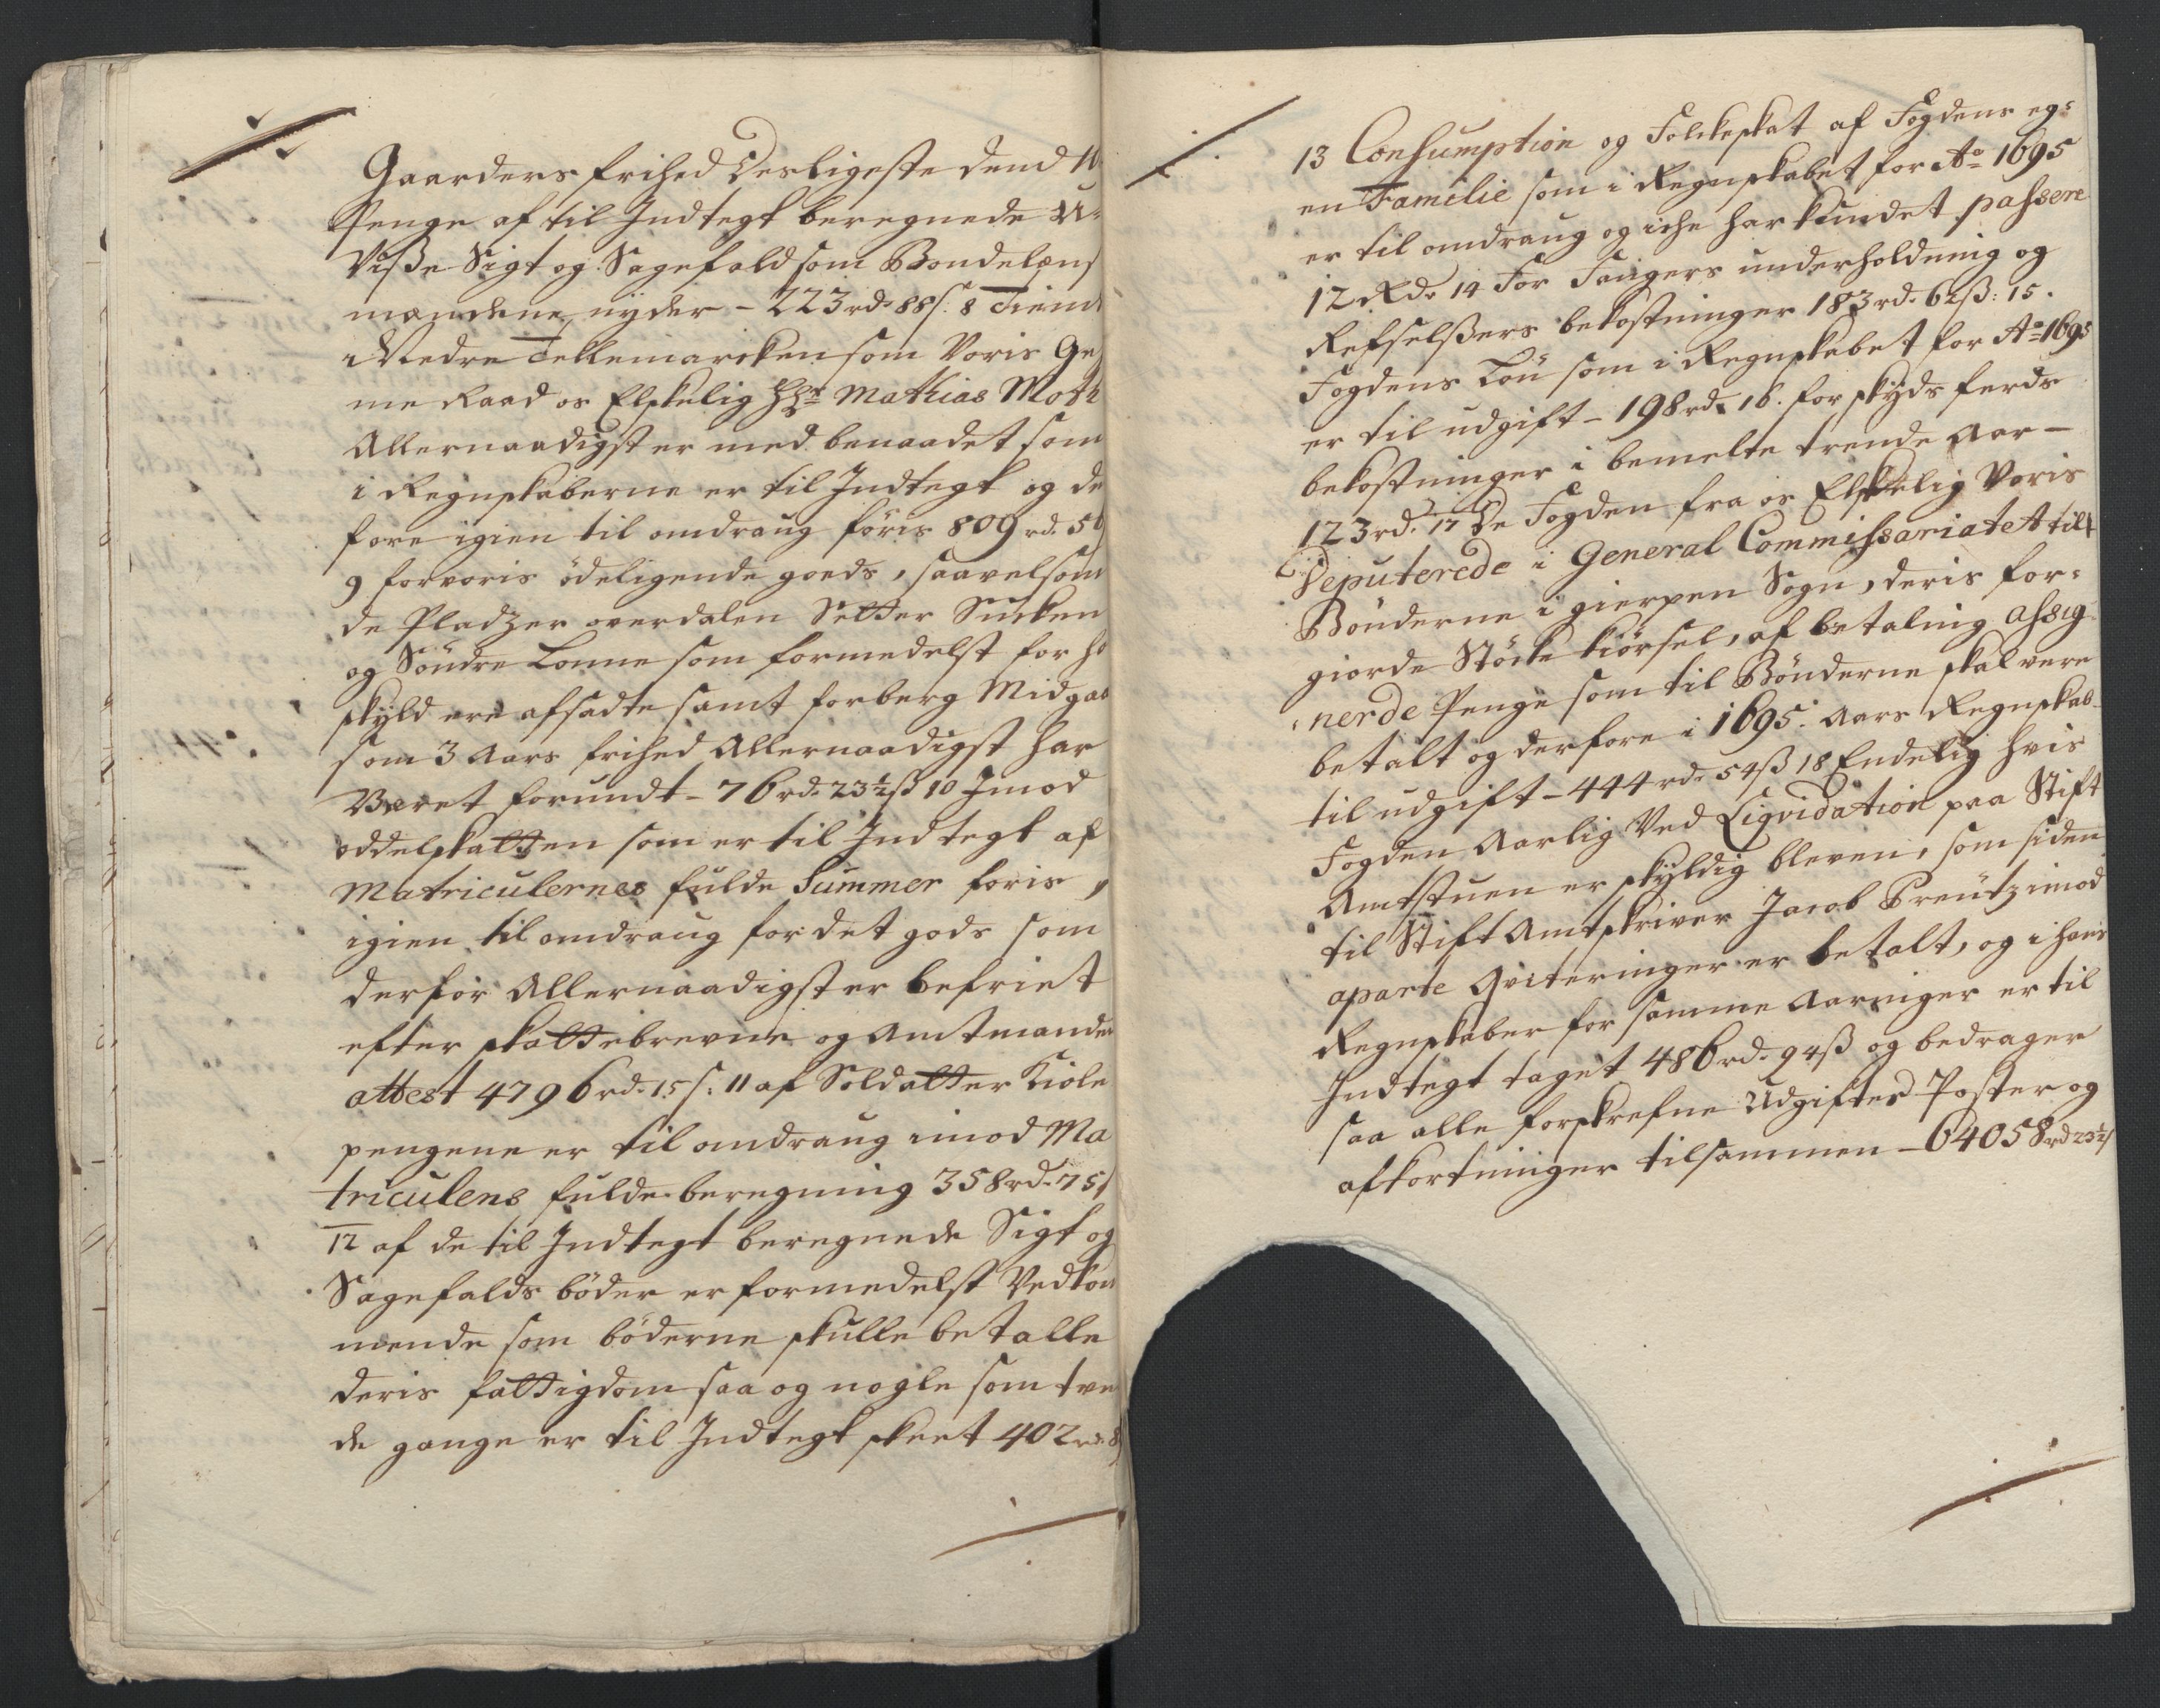 Gaarders frihed Desligeste dend 10
Penge af til Indtegt beregnede U-
Visse Sigt og Sagefald som Bondelens
mændene nyder - 223 rd. 88 s. 8 Tiend
i Nedre Tellemarcken som Voris Ge
me Raad os Elskelig Hr Mathias Moth
Allernaadigst er med benaadet som
i Regnskaberne er til Indtegt og de
fore igien til omdraug føris 809 rd. 56
9 forvoris ødeligende goeds, saavelsom
de Pladzer overdalen Setter Sincken
og Söndre Lonne som formedelst for ho
skyld ere afsadte samt forberg Midgaa
som 3 Aars frihed Allernaadigst har
Veret forundt - 76 rd. 23½ ß 10 Imod
oddelskatten som er til Indtegt af
Matriculernes fulde Summer føris,
igien til omdraug for det gods som
derfor Allernaadigst er befriet
efter skattebrevene og Amtmanden
attest 4796 rd. 15 s: 11 af Soldatter Kiole
pengene er til omdraug imod Ma
triculens fulde beregning 358 rd. 75 s
12 af de til Indtegt beregnede Sigt og
Sagefalds bøder er formedelst Vedkom
mende som bøderne skulle betalle
deris fattigdom saa og nogle som tve
de gange er til Indtegt skeet 402 rd. 8
13 Consumption og Folckeskat af Fogdens eg-
en Familie som i Regnskabet for Ao 1695
er til omdraug og iche har kundet passere
12 Rd. 14 For Fangers underholdning og
Refselssers bekostninger 183 rd. 62 ß: 15.
Fogdens Løn som i Regnskabet for Ao 1695
er til udgift - 198 rd. 16. for skyds ferds
bekostninger i bemelte trende Aar -
123 rd. 17 De Fogden fra os Elskelig Voris
Deputerede i General Commissariatet till
Bønderne i gierpen Sogn, deris for-
giorde Støcke kiørsel, af betaling assig
nerde Penge som til Bønderne skal vere
betalt og derfore i 1695. Aars Regnskab
til udgift - 444 rd. 54 ß 18 Endelig hvis
Fogden Aarlig Ved Liqvidation paa Stift
Amtstuen er skyldig bleven, som siden
til Stift Amtskriver Jacob Preutz imod
aparte Qviteringer er betalt, og i hans
Regnskaber for samme Aaringer er til
Indtegt taget 486 rd. 94 ß og bedrager
saa alle forskrefne Udgifter Poster og
afkortninger tilsammen - 64058 rd 23½ s